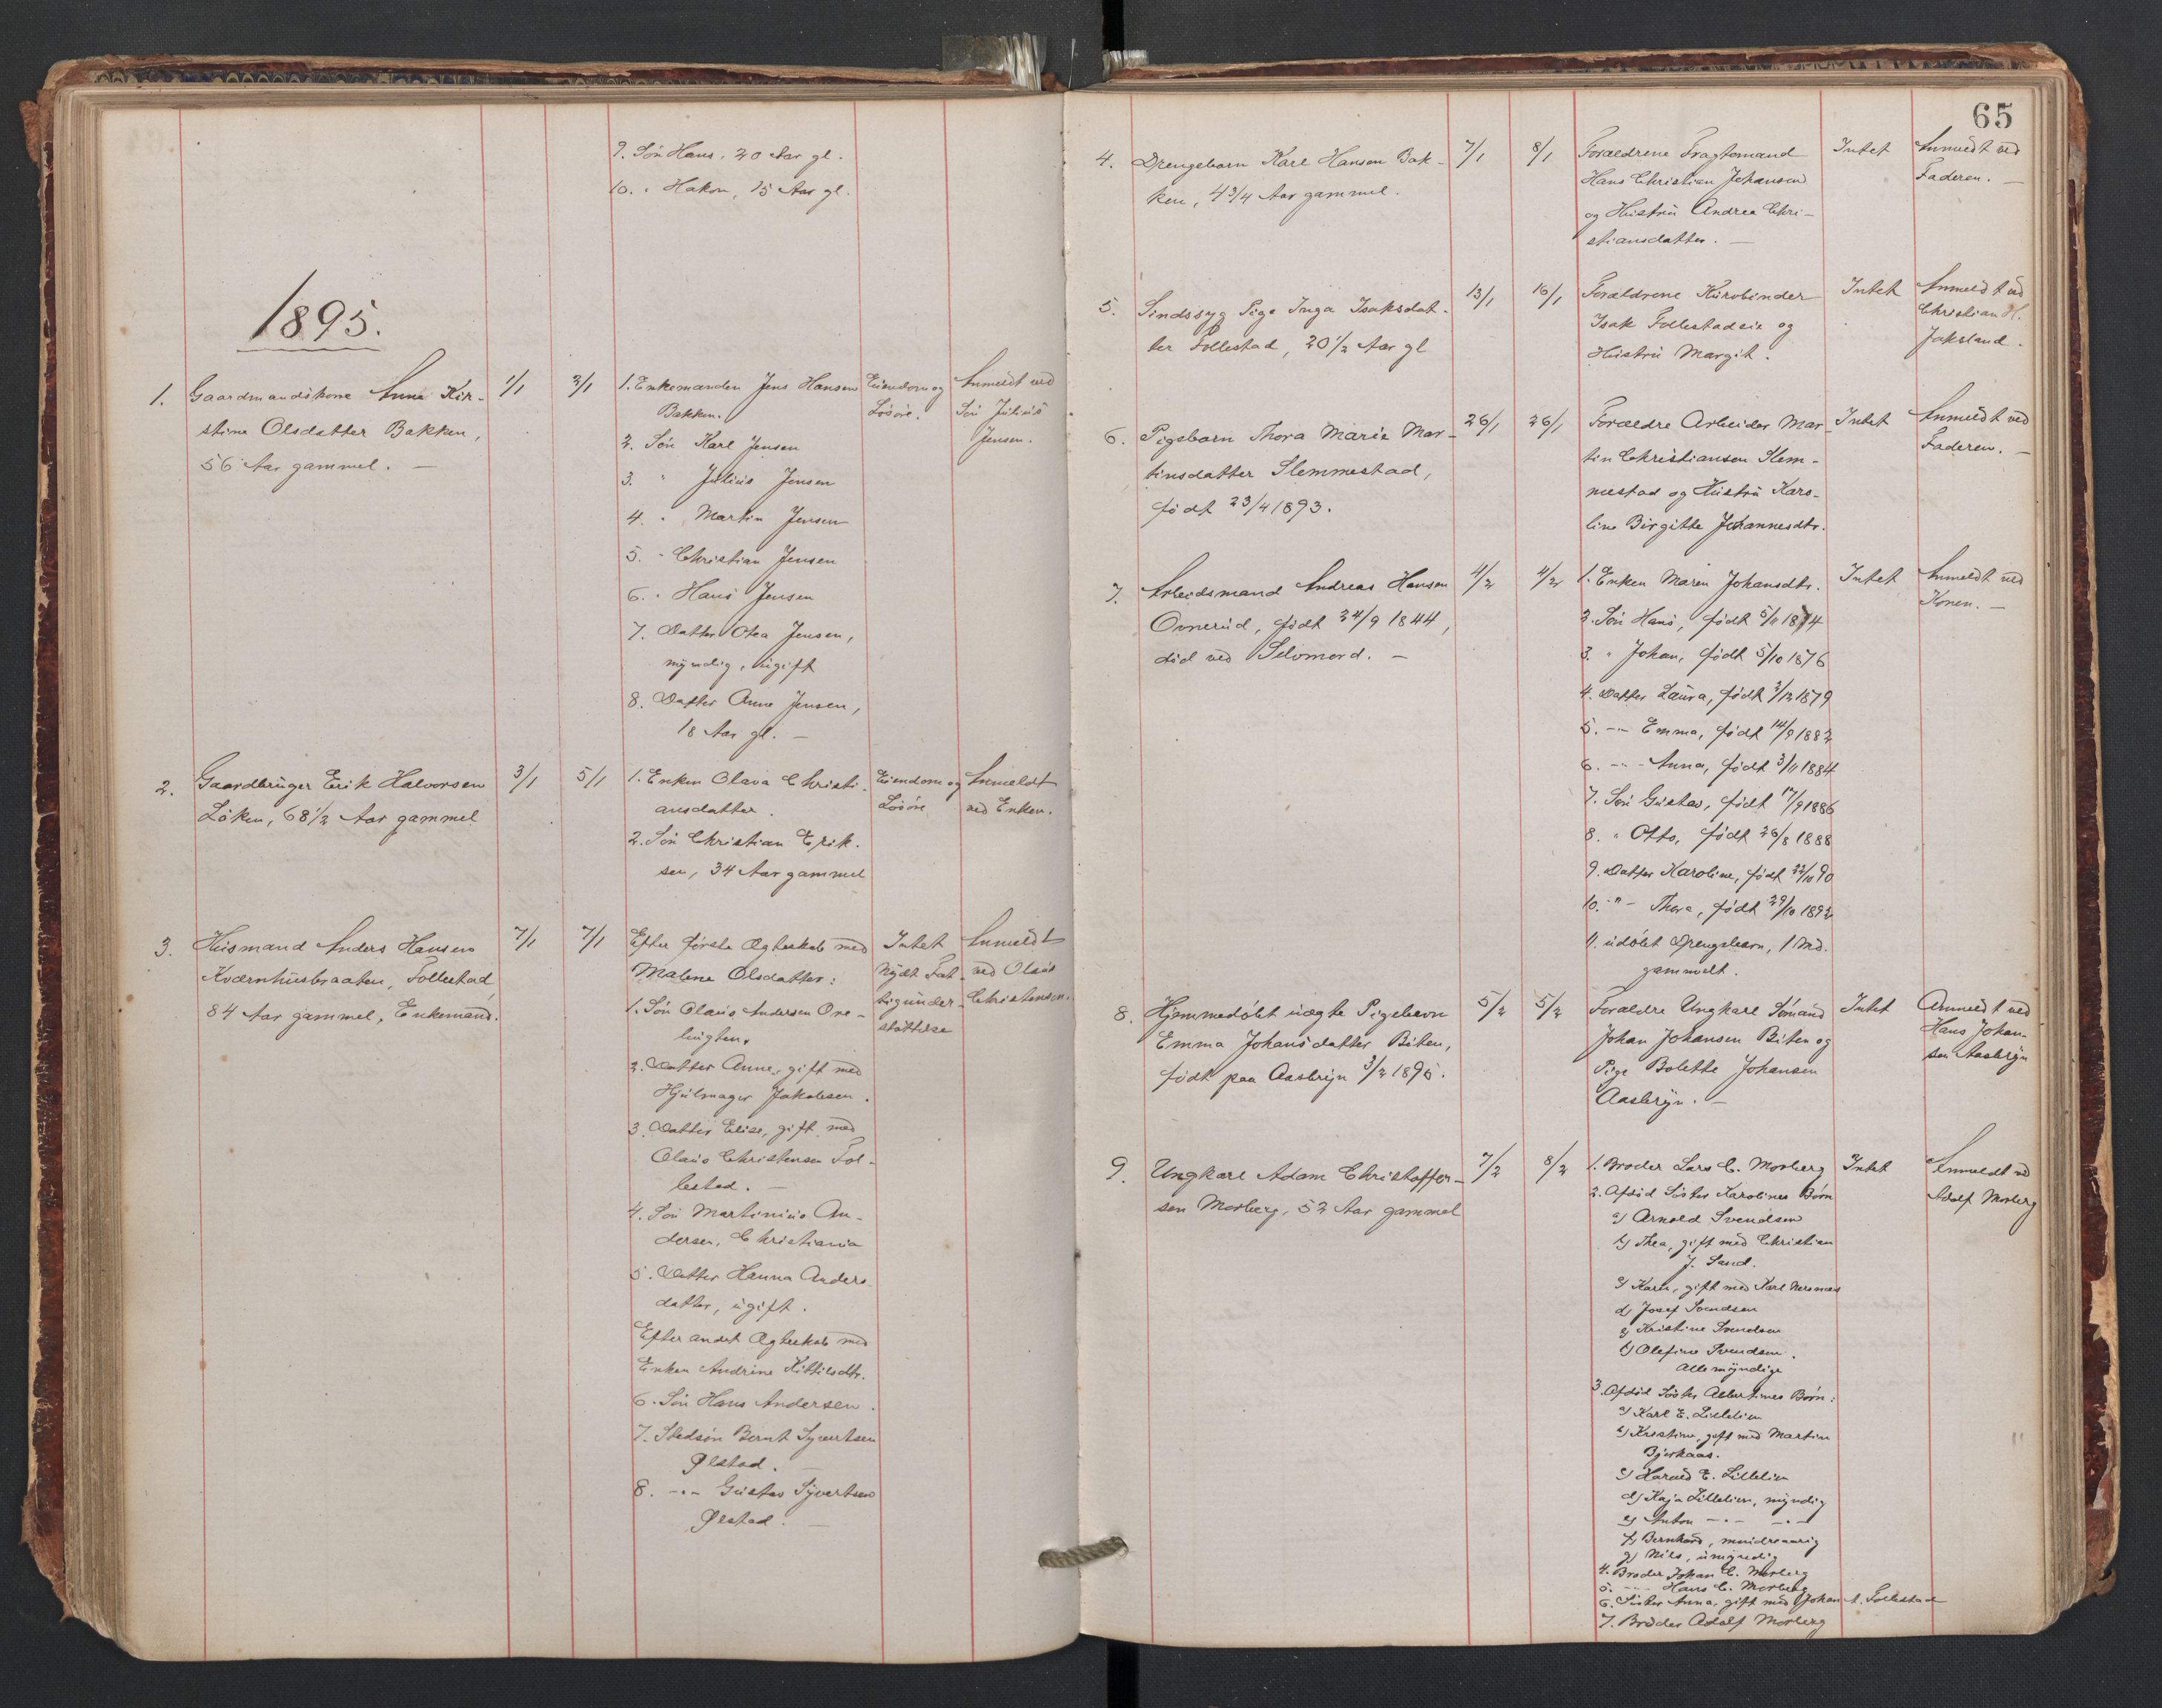 9. Søn Hans, 20 Aar gl.
10. " Hakon, 15 Aar gl.
1895.
1. Gaardmandskone Anne Kir-
stine Olsdatter Bakken,
56 Aar gammel. —
1/1
2/1
1. Enkemanden Jens Hansen
Bakken.
2. Søn Karl Jensen
3. " Julius Jensen
4. " Martin Jensen
5. " Christian Jensen
6. " Hans Jensen
7. Datter Otea Jensen,
myndig, ugift
8. Datter Anne Jensen,
18 Aar gl. —
Eiendom og
Løsøre.
Anmeldt ved
Søn Julius
Jensen.
2. Gaardbruger Erik Halvorsen
Löken, 68 1/2 Aar gammel
3/1
5/1
1. Enken Olava Christi-
ansdatter.
2. Søn Christian Erik-
sen, 34 Aar gammel
Eiendom og
Løsøre
Anmeldt
ved Enken.
3. Husmand Anders Hansen
Kværnhusbraaten, Follestad,
84 Aar gammel, Enkemand.
7/1
7/1
Efter første Ægteskab med
Malene Olsdatter:
1. Søn Olaus Andersen Ore-
lugten.
2. Datter Anne, gift med
Hjulmager Jakobsen.
3. Datter Elise, gift med
Olaus Christensen Fol-
lestad. —
4. Søn Martinius An-
dersen, Christiania
5. Datter Hanna Anders-
datter, ugift.
Efter andet Ægteskab med
Enken Andrine Kittilsdtr.
6. Søn Hans Andersen.
7. Stedsøn Bernt Syvertsen
Ølstad. —
8. —"— Gustav Syvertsen
Ølstad. —
Intet
Nydt Fat-
tigunder-
støttelse
Anmeldt
ved Olaus
Christensen.
65
4. Drengebarn Karl Hansen Bak-
ken, 4 3/4 Aar gammel.
7/1
8/1
Forældrene Fragtemand
Hans Christian Johansen
og Hustru Andrea Chri-
stiansdatter. —
Intet
Anmeldt ved
Faderen. —
5. Sindssyg Pige Inga Isaksdat-
ter Follestad, 20 1/2 Aar gl
13/1
16/1
Forældrene Kurvbinder
Isak Follestadeie og
Hustru Margit.
Intet
Anmeldt ved
Christian H.
Jaksland.
6. Pigebarn Thora Marie Mar-
tinsdatter Slemmestad,
født 23/4 1893.
26/1
26/1
Forældre Arbeider Mar-
tin Christiansen Slem-
mestad og Hustru Karo-
line Birgitte Johannesdtr.
Intet
Anmeldt ved
Faderen. —
7. Arbeidsmand Andreas Hansen
Ovnerud, født 24/9 1844,
død ved Selvmord. —
4/2
4/2
1. Enken Maren Johansdtr.
2. Søn Hans, født 5/11 1874
3. " Johan, født 5/10 1876
4. Datter Laura, født 2/12 1879
5. —"— Emma, født 14/9 1882
6. —"— Anna, født 3/11 1884
7. Søn Gustav, født 17/9 1886
8. " Otto, født 26/8 1888
9. Datter Karoline, født 22/10 90
10. —"— Thora, født 29/10 1892
11. udøbt Drengebarn, 1 Md.
gammelt.
Intet
Anmeldt ved
Konen. —
8. Hjemmedøbt uægte Pigebarn
Emma Johansdatter Biten,
født paa Aasbryn 3/2 1895.
5/2
5/2
Forældre Ungkarl Sømand
Johan Johansen Biten og
Pige Bolette Johansen
Aasbryn. —
Intet
Anmeldt ved
Hans Johan-
sen Aasbryn
9. Ungkarl Adam Christoffer-
sen Morberg, 52 Aar gammel
7/2
8/2
1. Broder Lars C. Morberg
2. Afdød Søster Karolines Børn
a) Arnold Svendsen
b) Thea, gift med Christian
J. Sand.
c) Karen, gift med Karl Nersnæs
d) Josef Svendsen
e) Kristine Svendsen
f) Olefine Svendsen.
Alle myndige
3. Afdød Søster Albertines Børn:
a) Karl E. Lillelien
b) Kristine, gift med Martin
Bjerkaas.
c) Harald E. Lillelien
d) Kaja Lillelien, myndig
e) Anton —"— —"—
f) Bernhard, mindreaarig
g) Nils, umyndig
4. Broder Johan C. Morberg
5. —"— Hans C. Morberg
6. Søster Anna, gift med Johan A. Follestad
7. Broder Adolf Morberg
Intet
Anmeldt ved
Adolf Morberg